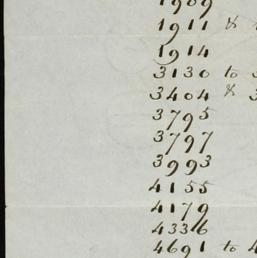 1909
1911 &
1914
3130 to 3
3404 & 3
3795
3797
3993
4155
4179
4336
4691 to 4